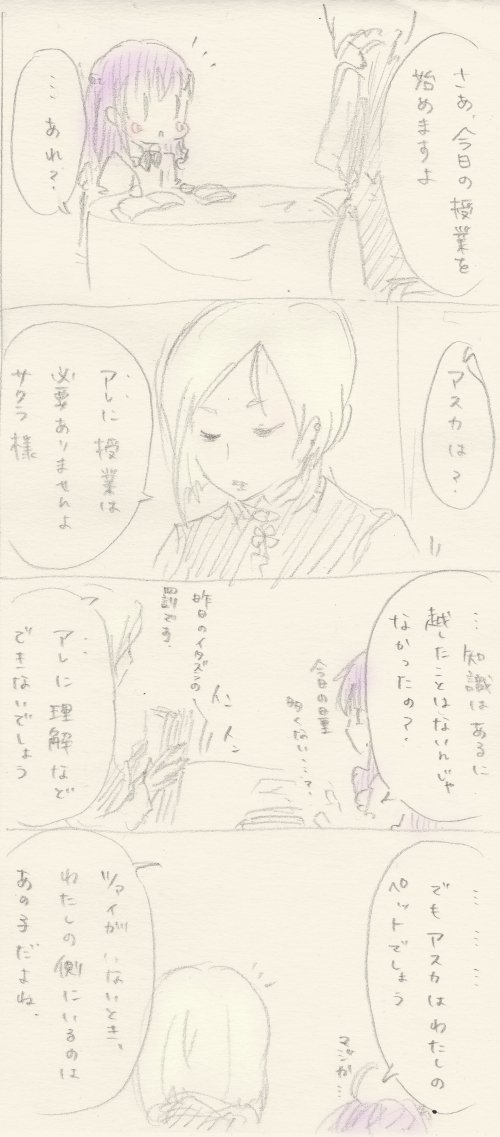 さあ、今日の授業を
始めますよ
…あれ？
アスカは？
アレに授業は
必要ありませんよ
サクラ様
…知識はあるに
越したことはないんじゃ
なかったの？
今日の日量
多くない…？
昨日のイタズラの
罰です。
アレに理解など
できないでしょう
…………
でもアスカはわたしの
ペットでしょう
マジか…
ツァイがいないとき、
わたしの側にいるのは
あの子だよね。